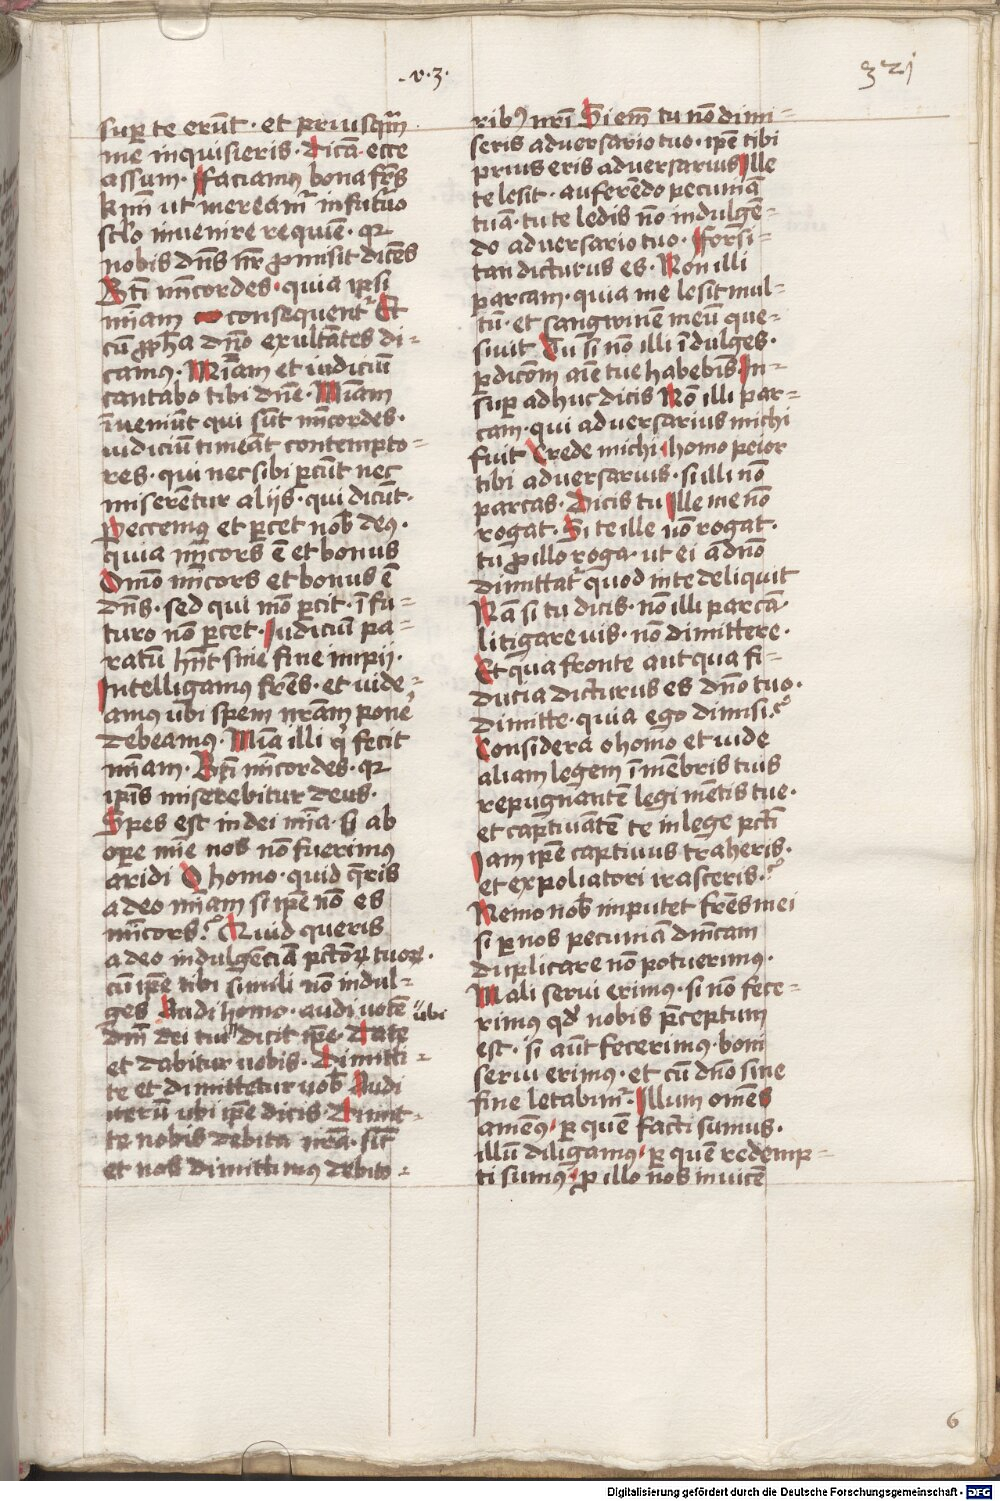 .v.3.
321
sup te erūt · et priusq̄m
me inquisieris · Dicā ecce
assum · Faciamꝰ bona frēs
kmī ut mereamᷣ in futuo
sclō invenire requiē · qꝛ
nobis dn̄s nr̄ ꝓmisit dicēs
Bti mīcordes · quia ipsi
mīam consequentᷣ Et
cū ꝓph̄a dn̄o exultātes di-
camꝰ · Mīam et iudiciū
cantabo tibi dn̄e · Mīam
īveniūt qui sūt mīcordes ·
iudiciū timeāt contempto-
res · qui nec sibi ꝑcūt nec
miserētur alijs · qui dicūt ·
Peccemꝰ et ꝑcet nob̄ deꝰ ·
quia mīcors ē et bonus
Om̄o mīcors et bonus ē
dn̄s · sed qui mō ꝑcit · ī fu-
turo nō ꝑcet · Judiciū pa-
ratū hn̄t sine fine impij ·
Intelligamꝰ frēs · et uide-
amꝰ ubi spem nr̄am pone
debeamꝰ · Mīa illi qͥ fecit
mīam · Bti mīcordes · qꝛ
ip̄is miserebitur deus ·
Spes est in dei mīa · si ab
ope mīe nos nō fuerimꝰ
aridi O homo · quid q̄ris
a deo mīam si ip̄e nō es
mīcors? Quid queris
a deo indulgēciā pctōꝝ tuoꝝ ·
cū ip̄e tibi simili nō indul-
ges Audi homo · audi uocē
ubi
dn̄i dei tui " dicit ip̄e · Date
et dabitur uobis · Dimitti-
te et dimittetur uob̄ Audi
iterū ubi ip̄e dicis Dimit-
te nobis debita nr̄a · sic̄
et nos dimittimꝰ debito-
ribꝰ nr̄i Si em̄ tu nō dimi-
seris adversario tuo · ip̄e tibi
prius eris adversarius Ille
te lesit · auferēdo pecuniā
tuā · tu te ledis nō indulgē-
do adversario tuo · Forsi-
tan dicturus es · Non illi
parcam · quia me lesit mul-
tū · et sangwinē meū que-
siuit Tu si nō illi īdulges ·
ꝑdicōm aīe tue habebis · In-
suꝑ adhuc dicis Nō illi par-
cam · qui adversarius michi
fuit Crede michi · homo peior
tibi adversarius · si illi nō
parcas · Dicis tu Ille me nō
rogat · Si te ille nō rogat ·
tu ꝓ illo roga · ut ei a dn̄o
dimittatᷣ quod in te deliquit
Nā si tu dicis · nō illi parcā ·
litigare uis · nō dimittere ·
Et qua fronte aut qua fi-
ducia dicturus es dn̄o tuo ·
dimitte · quia ego dimisi ·?
Considera o homo et uide
aliam legem ī mēbris tuis
repugnantē legi mētis tue ·
et captiuātē te in lege pcti
Jam ip̄e captiuus traheris ·
et expoliatori irasceris ·?
Nemo nob̄ imputet frēs mei
si ꝑ nos pecuniā dn̄icam
duplicare nō potuerimꝰ ·
Mali serui erimꝰ · si nō fece-
rimꝰ qd̄ nobis p̄ceptum
est · si aūt fecerimꝰ · boni
serui erimꝰ · et cū dn̄o sine
fine letabimᷣ · Illum om̄es
amemꝰ · ꝑ quē facti sumus ·
illū diligamꝰ · ꝑ quē redemp-
ti sumꝰ · ꝓ illo nos inuicē
6
Digitalisierung gefördert durch die Deutsche Forschungsgemeinschaft - DFG